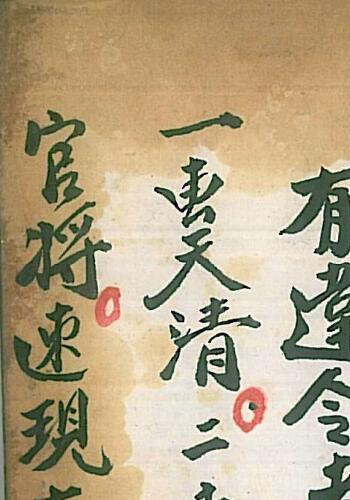 有違令
一畫天清二
官將速現